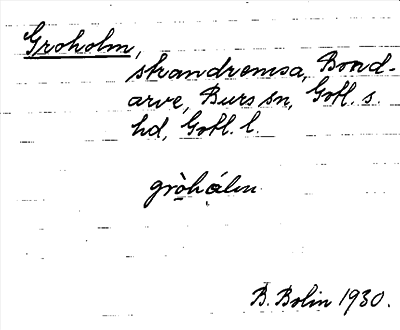 Groholm,
strandremsa, Bond-
arve, Burs sn, Gotl. s.
hd, Gotl. l.
gròhálm
B. Bolin 1930.